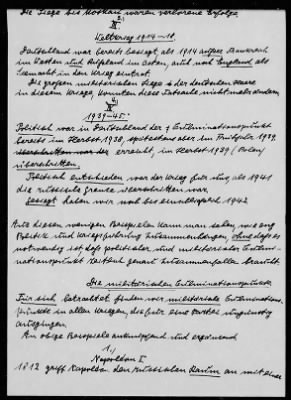 Die Siege bis Moskau waren verlorene Erfolge
II.
Weltkrieg 1914–18.
Deutschland war bereits besiegt, als 1914 ausser Frankreich
im Westen und Russland im Osten, auch noch England als
Seemacht in den Krieg eintrat.
Die grossen militärischen Siege der deutschen Heere
in diesem Kriege, konnten diese Tatsache nicht mehr ändern.
III.
1939–45:
Politisch war in Deutschland der Culminationspunkt
bereits im Herbst 1938, spätestens aber im Frühjahr 1939
erreicht, im Herbst 1939 (Polen)
überschritten.
Politisch entschieden war der Krieg für uns, als 1941
die russische Grenze überschritten war.
Besiegt haben wir uns bis einschliesslich 1942
Aus diesen wenigen Beispielen kann man sehen, wie eng
Politik und Kriegführung zusammenhängen, ohne dass es
notwendig ist, dass politischer und militärischer Culmi-
nationspunkt zeitlich genau zusammenfallen braucht.
Die militärischen Culminationspunkte
Für sich betrachtet finden wir militärische Culminations-
punkte in allen Kriegen, die für eine Partei ungünstig
ausgingen.
An obige Beispiele anknüpfend und ergänzend
1.)
Napoleon I
1812 griff Napoleon den russischen Raum an mit einer